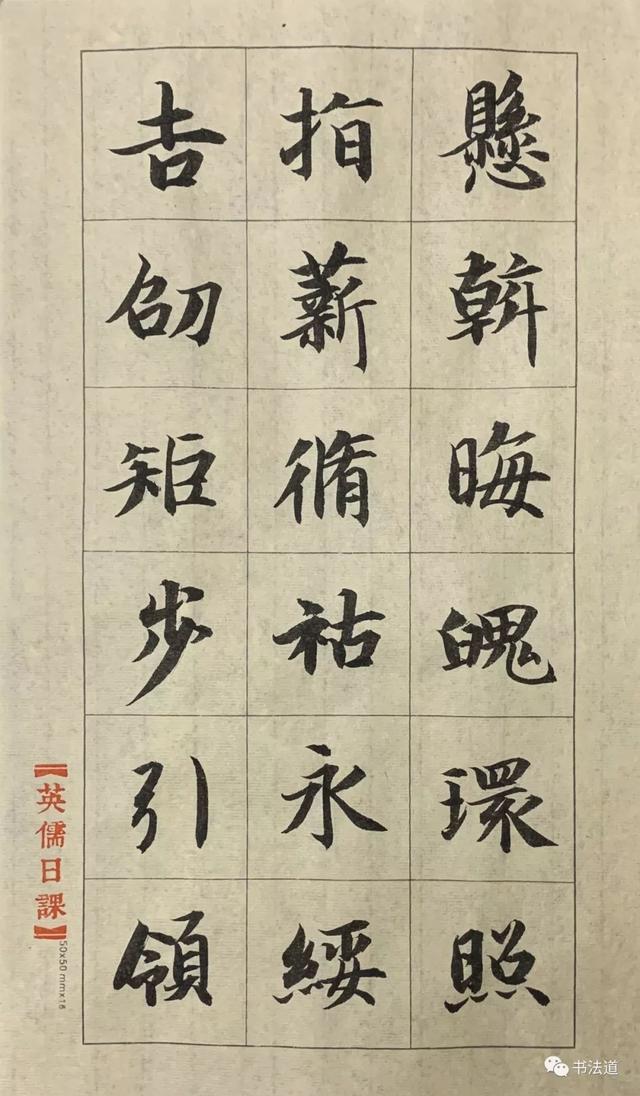 懸斡晦魄環照
指薪脩祜永綏
吉劭矩步引領
【英儒日課】
50x50mmx18
书法道